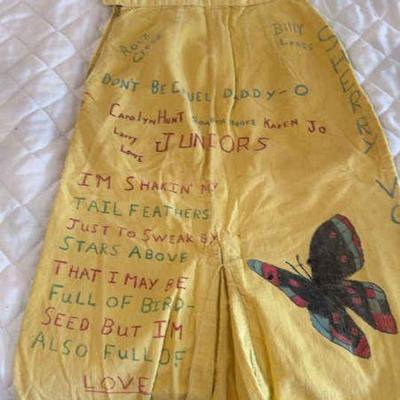 Billy
DON'T BE CRUEL DADDY-O
CAROLYN HUNT KAREN JO
Larry
Love
JUNIORS
I'M SHAKIN' MY
TAIL FEATHERS
JUST TO SWEAK BY
STARS ABOVE
THAT I MAY BE
FULL OF BIRD-
SEED BUT I'M
ALSO FULL OF
LOVE